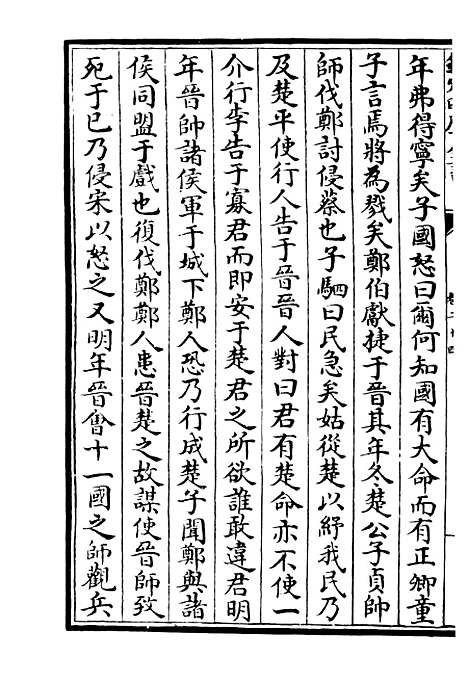 年弗得寧矣子國怒曰爾何知國有大命而有正卿童
子言焉將為戮矣鄭伯獻捷于晉其年冬楚公子貞帥
師伐鄭討侵蔡也子駟曰民急矣姑從楚以紓我民乃
及楚平使行人告于晉晉人對曰君有楚命亦不使一
介行李告于寡君而即安于楚君之所欲誰敢違君明
年晉帥諸侯軍于城下鄭人恐乃行成楚子聞鄭與諸
侯同盟于戲也復伐鄭鄭人患晉楚之故謀使晉師致
死于已乃侵宋以怒之又明年晉會十一國之師觀兵